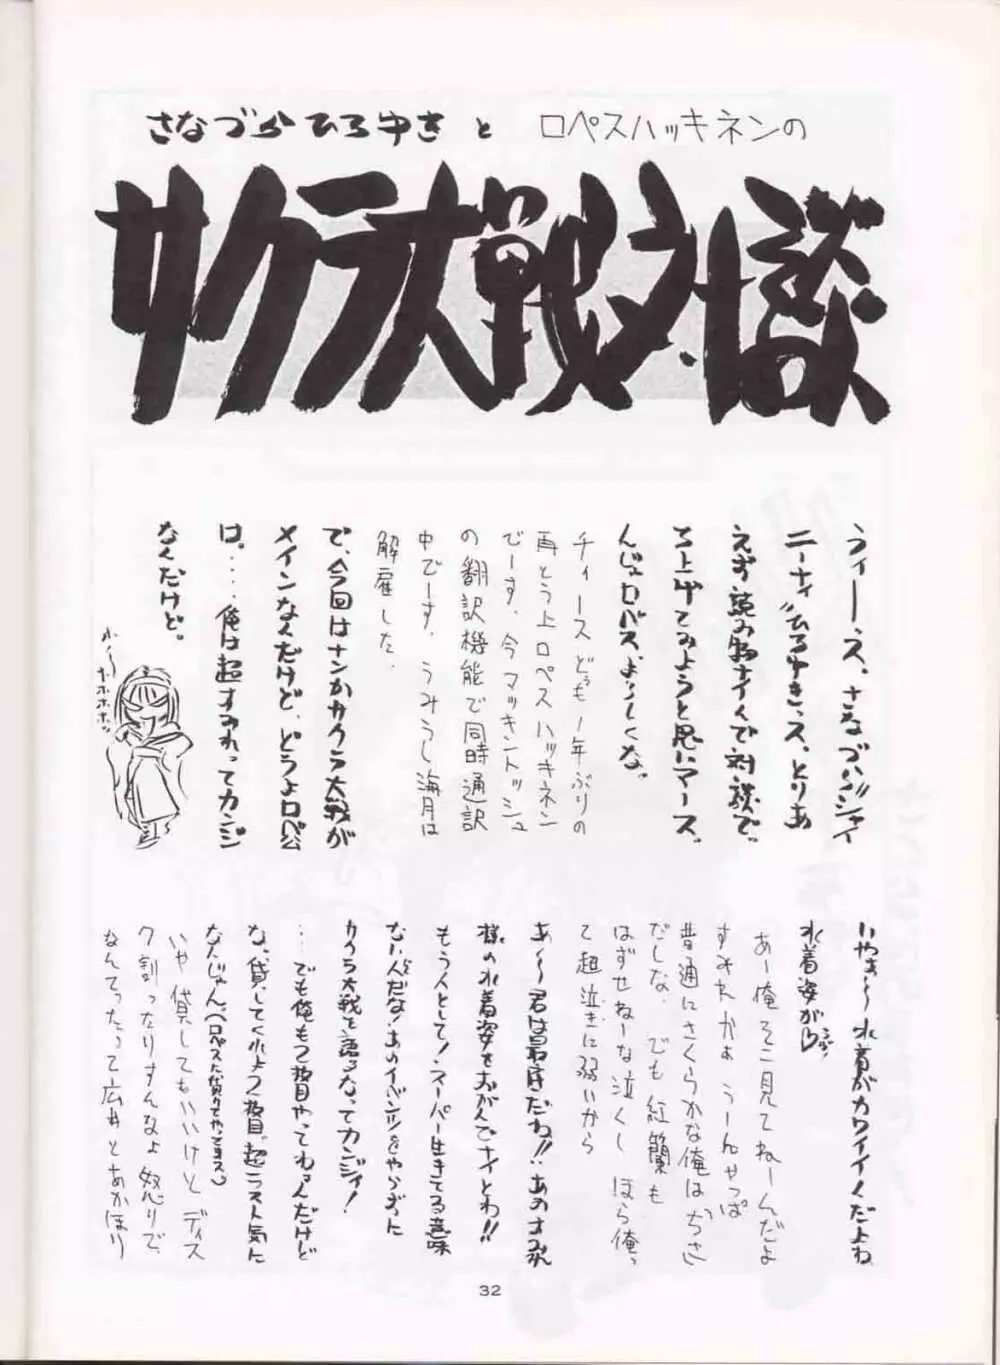 さなづらひろゆきと ロペスハッキネンの
サクラ大戦対談
うぃーース、さなづらジャイ
ニーナィ"ひろゆきっス、とりあ
えず読み物ナイんで対談で、
も上げてみようと思いマース。
んじゃロパス、よろしくな。
チィースどぅも1年ぶりの
再とう上ロペスハッキネン
でーす。今マッキントッシュ
の翻訳機能で同時通訳
中でーす。うみうし海月は
解雇した。
で、今回はナンかサクラ大戦が
メインなんだけど、どうよロペ公
は。‥‥俺は超すみれってカンジ
なんだけど。
ホ〜ホホホホッ
いやぁ〜水着がカワイイんだよね
水着姿が♡
あー俺そこ見てねーんだよ
すみれかぁ うーんやっぱ
普通にさくらかな俺は
だしな。でも紅蘭も
はずせねーな泣くし ほら俺っ
て超泣きに弱いから
あ〜〜君は最底だね!!あのすみれ
様の水着姿をおがんでナイとわ!!
もう人として!スーパー生きてる意味
ないんだな!あのイベントをやらずに
サクラ大戦を語るなってカンジィ!
…でも俺も2枚目やってねェんだけど
な、貸してくれよ2枚目。超ラスト気に
なんじゃん、(ロペスに貸りてやってまス)
いや貸してもいいけど ディス
ク割ったりすんなよ怒りで
なんてったって広井とあかほり
32